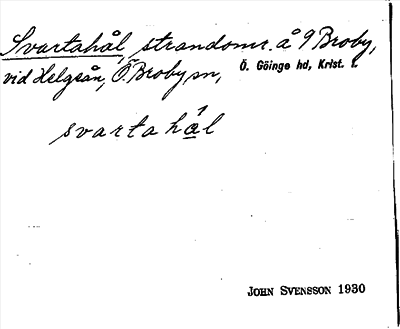 Svartahål, strandomr. å 9 Broby,
vid Helgeån, Ö. Broby sn, Ö. Göinge hd, Krist. l.
svartahål
JOHN SVENSSON 1930